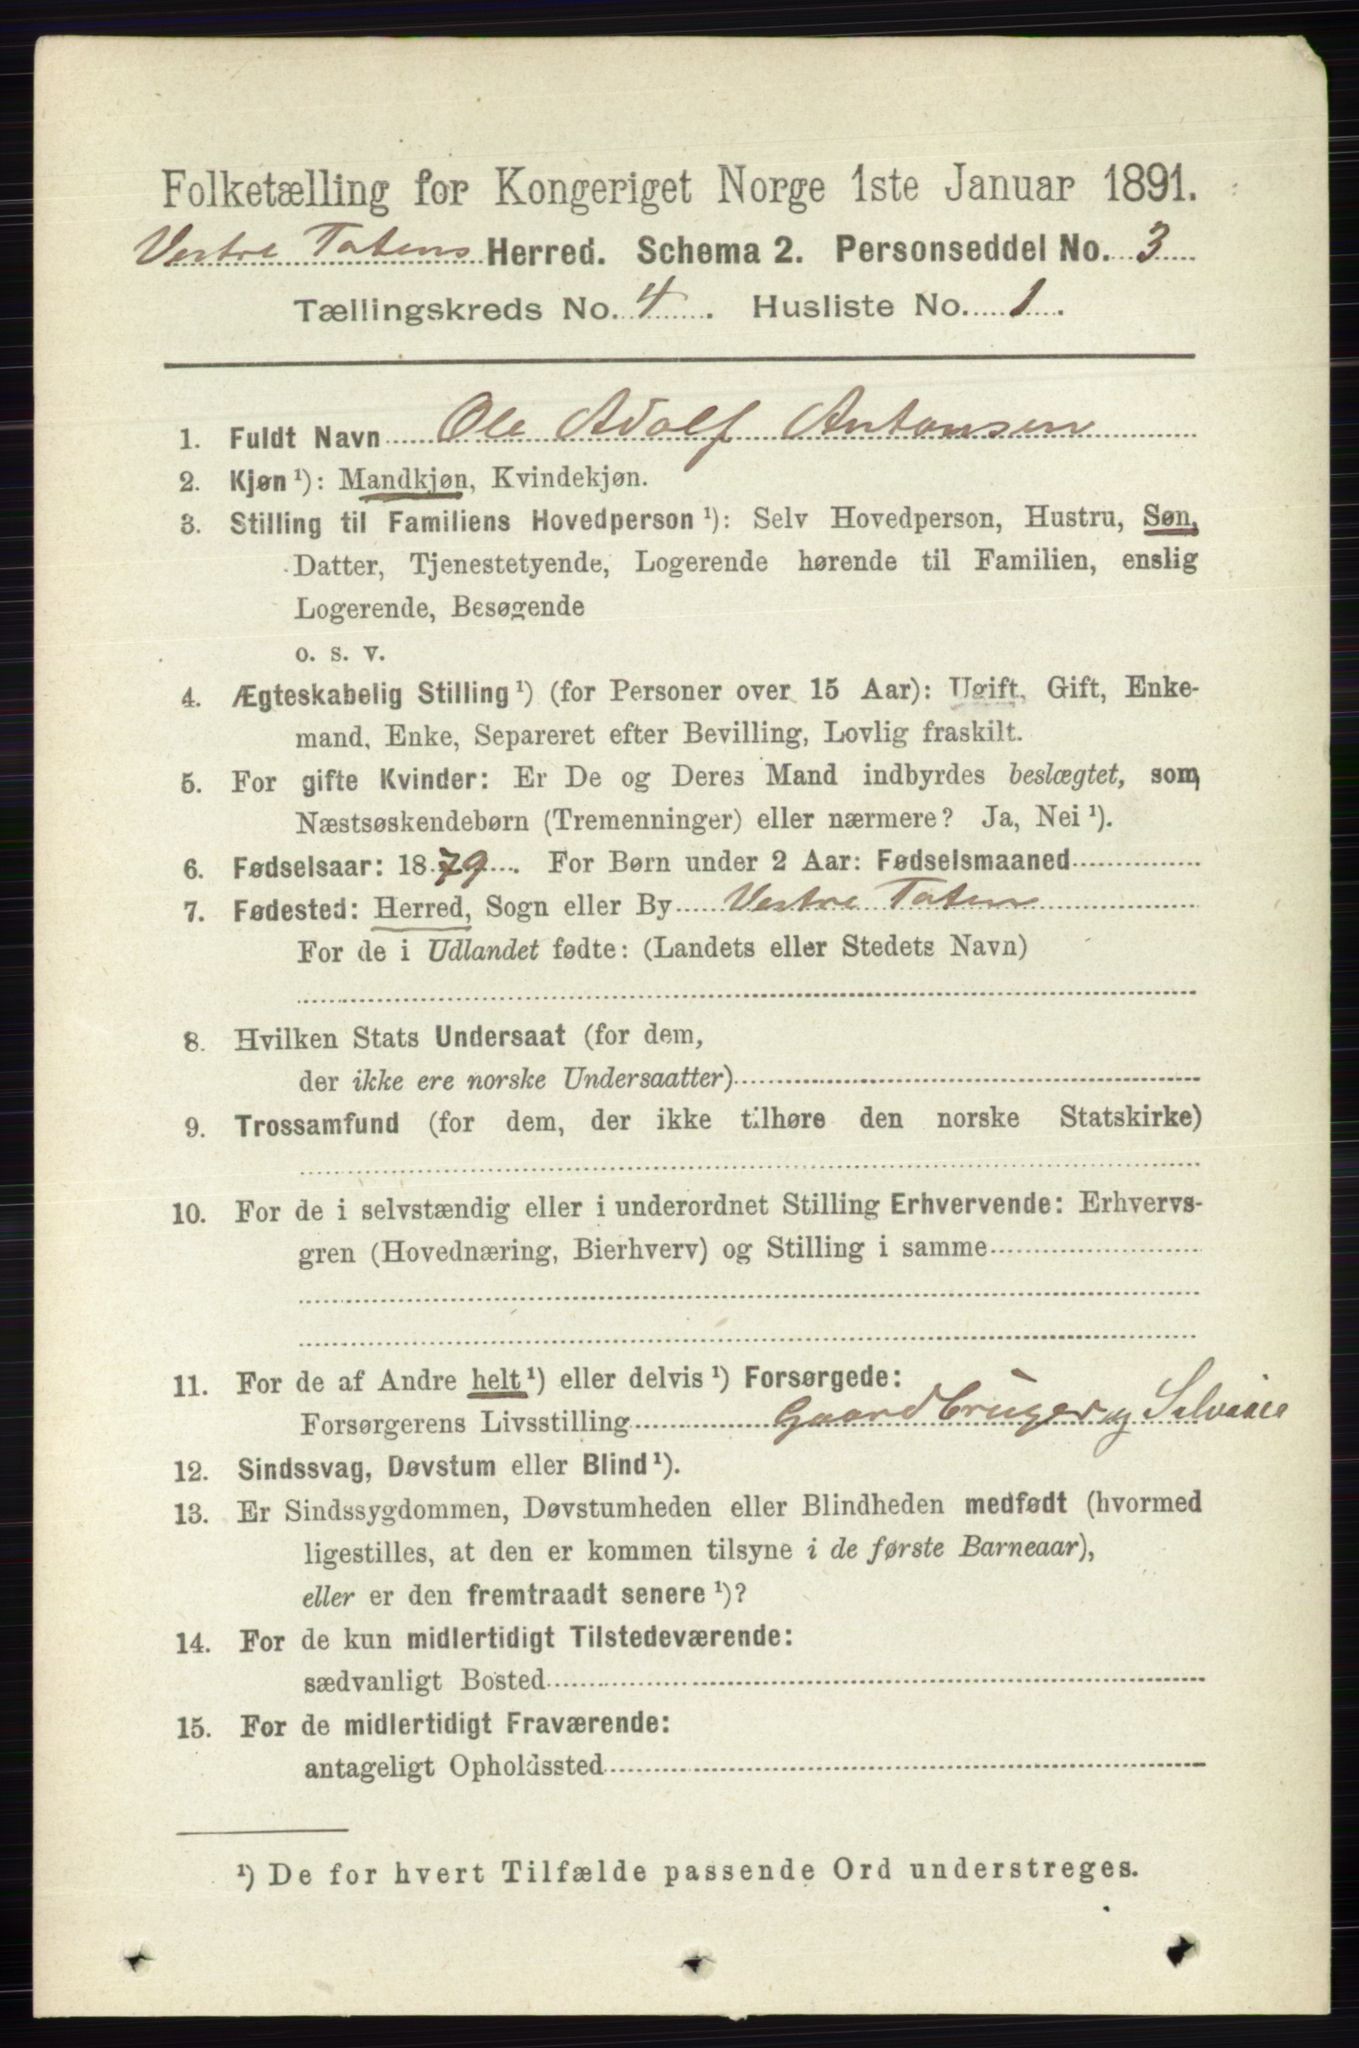 Folketælling for Kongeriget Norge 1ste Januar 1891.
Vestre Totens Herred. Schema 2. Personseddel No. 3
Tællingskreds No. 4. Husliste No. 1.
1. Fuldt Navn Ole Adolf Antonsen
2. Kjøn ¹): Mandkjøn, Kvindekjøn.
3. Stilling til Familiens Hovedperson ¹): Selv Hovedperson, Hustru, Søn,
Datter, Tjenestetyende, Logerende hørende til Familien, enslig
Logerende, Besøgende
o. s. v.
4. Ægteskabelig Stilling ¹) (for Personer over 15 Aar): Ugift, Gift, Enke-
mand, Enke, Separeret efter Bevilling, Lovlig fraskilt.
5. For gifte Kvinder: Er De og Deres Mand indbyrdes beslægtet, som
Næstsøskendebørn (Tremenninger) eller nærmere? Ja, Nei ¹).
6. Fødselsaar: 1879. For Børn under 2 Aar: Fødselsmaaned
7. Fødested: Herred, Sogn eller By Vestre Toten
For de i Udlandet fødte: (Landets eller Stedets Navn)
8. Hvilken Stats Undersaat (for dem,
der ikke ere norske Undersaatter)
9. Trossamfund (for dem, der ikke tilhøre den norske Statskirke)
10. For de i selvstændig eller i underordnet Stilling Erhvervende: Erhvervs-
gren (Hovednæring, Bierhverv) og Stilling i samme
11. For de af Andre helt ¹) eller delvis ¹) Forsørgede:
Forsørgerens Livsstilling Gaardbruger og Selveier
12. Sindssvag, Døvstum eller Blind ¹).
13. Er Sindssygdommen, Døvstumheden eller Blindheden medfødt (hvormed
ligestilles, at den er kommen tilsyne i de første Barneaar),
eller er den fremtraadt senere ¹)?
14. For de kun midlertidigt Tilstedeværende:
sædvanligt Bosted
15. For de midlertidigt Fraværende:
antageligt Opholdssted
¹) De for hvert Tilfælde passende Ord understreges.